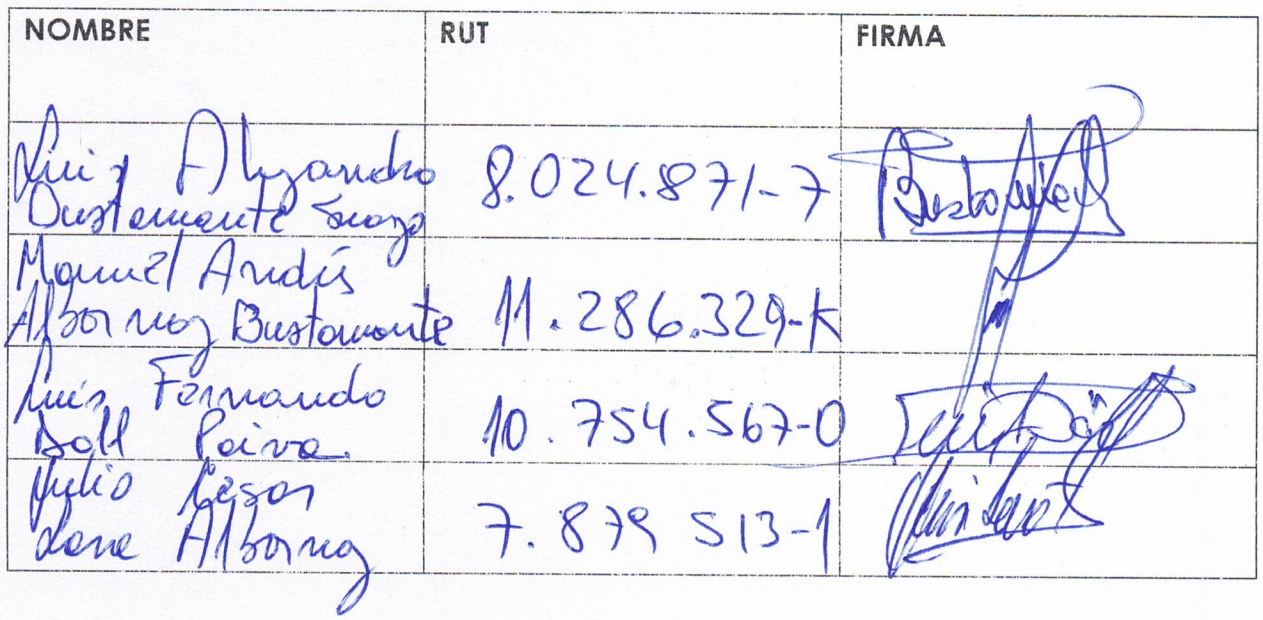 NOMBRE RUT FIRMA
Luis Alejandro 8.024.871-7
Bustamante Suazo
Manuel Andrés
Albornoz Bustamante 11.286.329-K
Luis Fernando
Doll Paiva. 10.754.567-0
Julio Cesar
Lara Albornoz 7.879 513-1